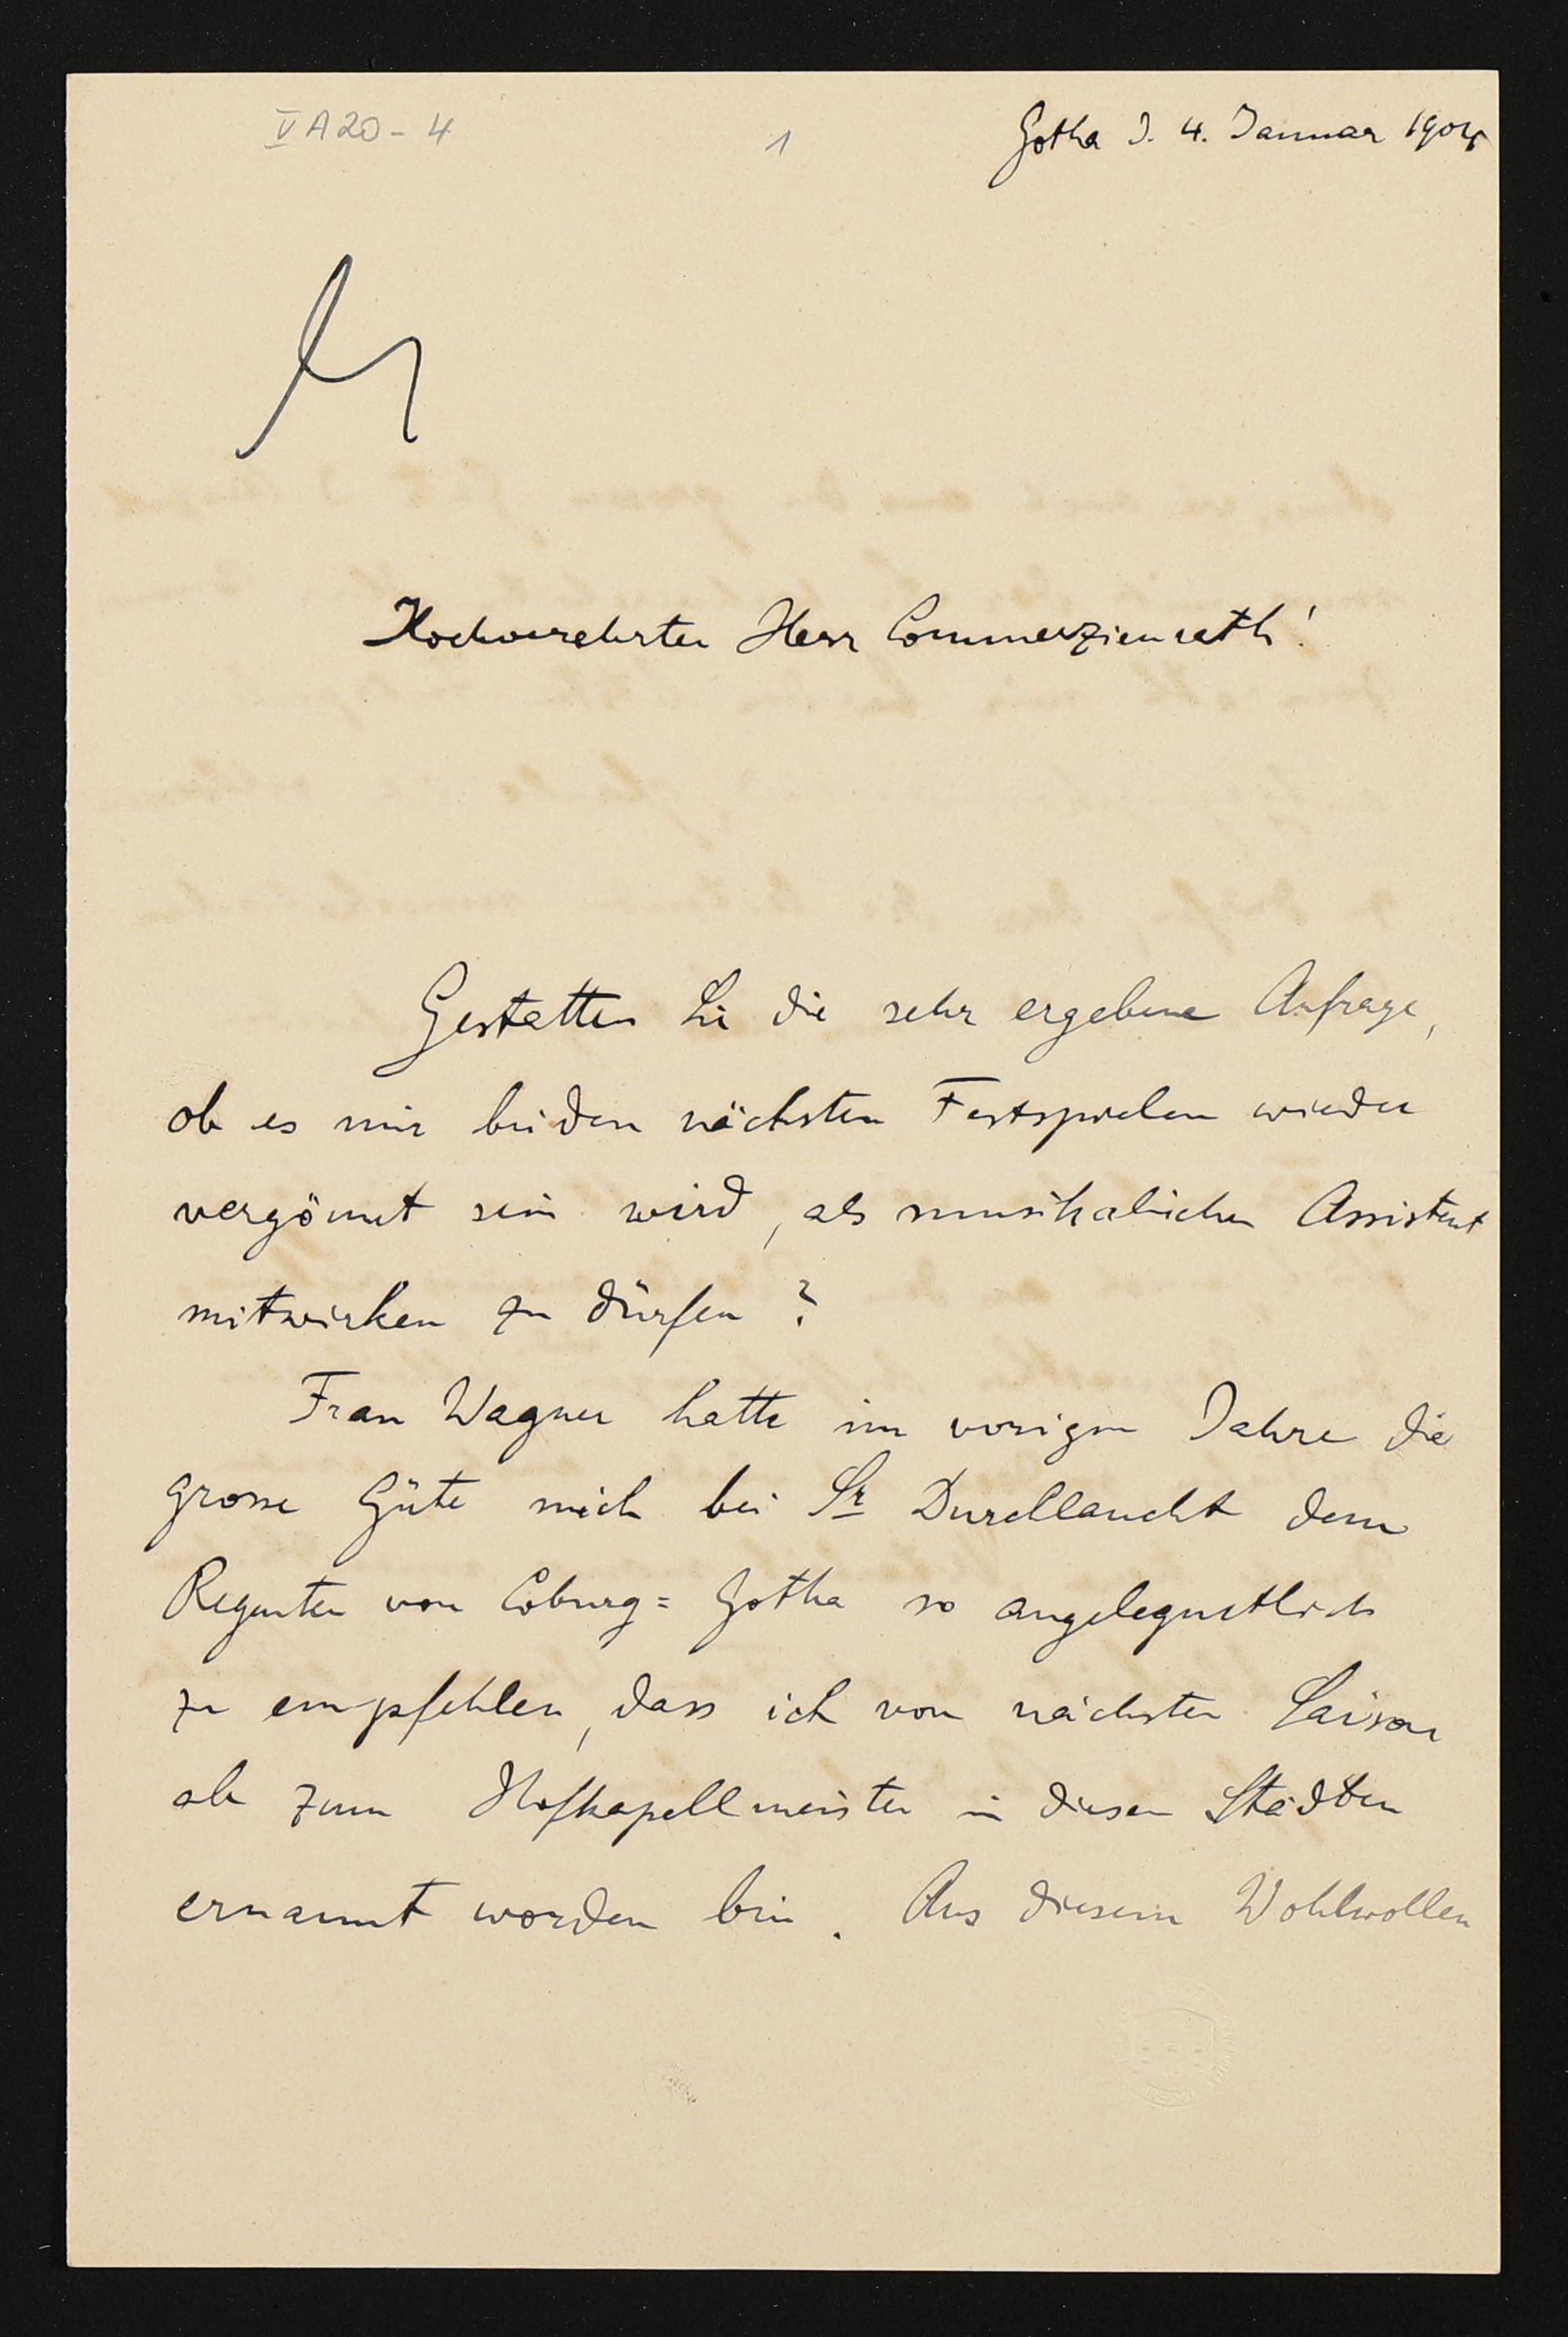 V A 20 - 4
1
Gotha d. 4. Januar 1904
Hochverehrter Herr Commerzienrath!
Gestatten Sie die sehr ergebene Anfrage,
ob es mir bei den nächsten Festspielen wieder
vergönnt sein wird, als musikalischer Assistent
mitwirken zu dürfen?
Frau Wagner hatte im vorigen Jahre die
grosse Güte mich bei Sr Durchlaucht dem
Regenten von Coburg=Gotha so angelegentlich
zu empfehlen, dass ich von nächster Saison
ab zum Hofkapellmeister in diesen Städten
ernannt worden bin. Aus diesem Wohlwollen